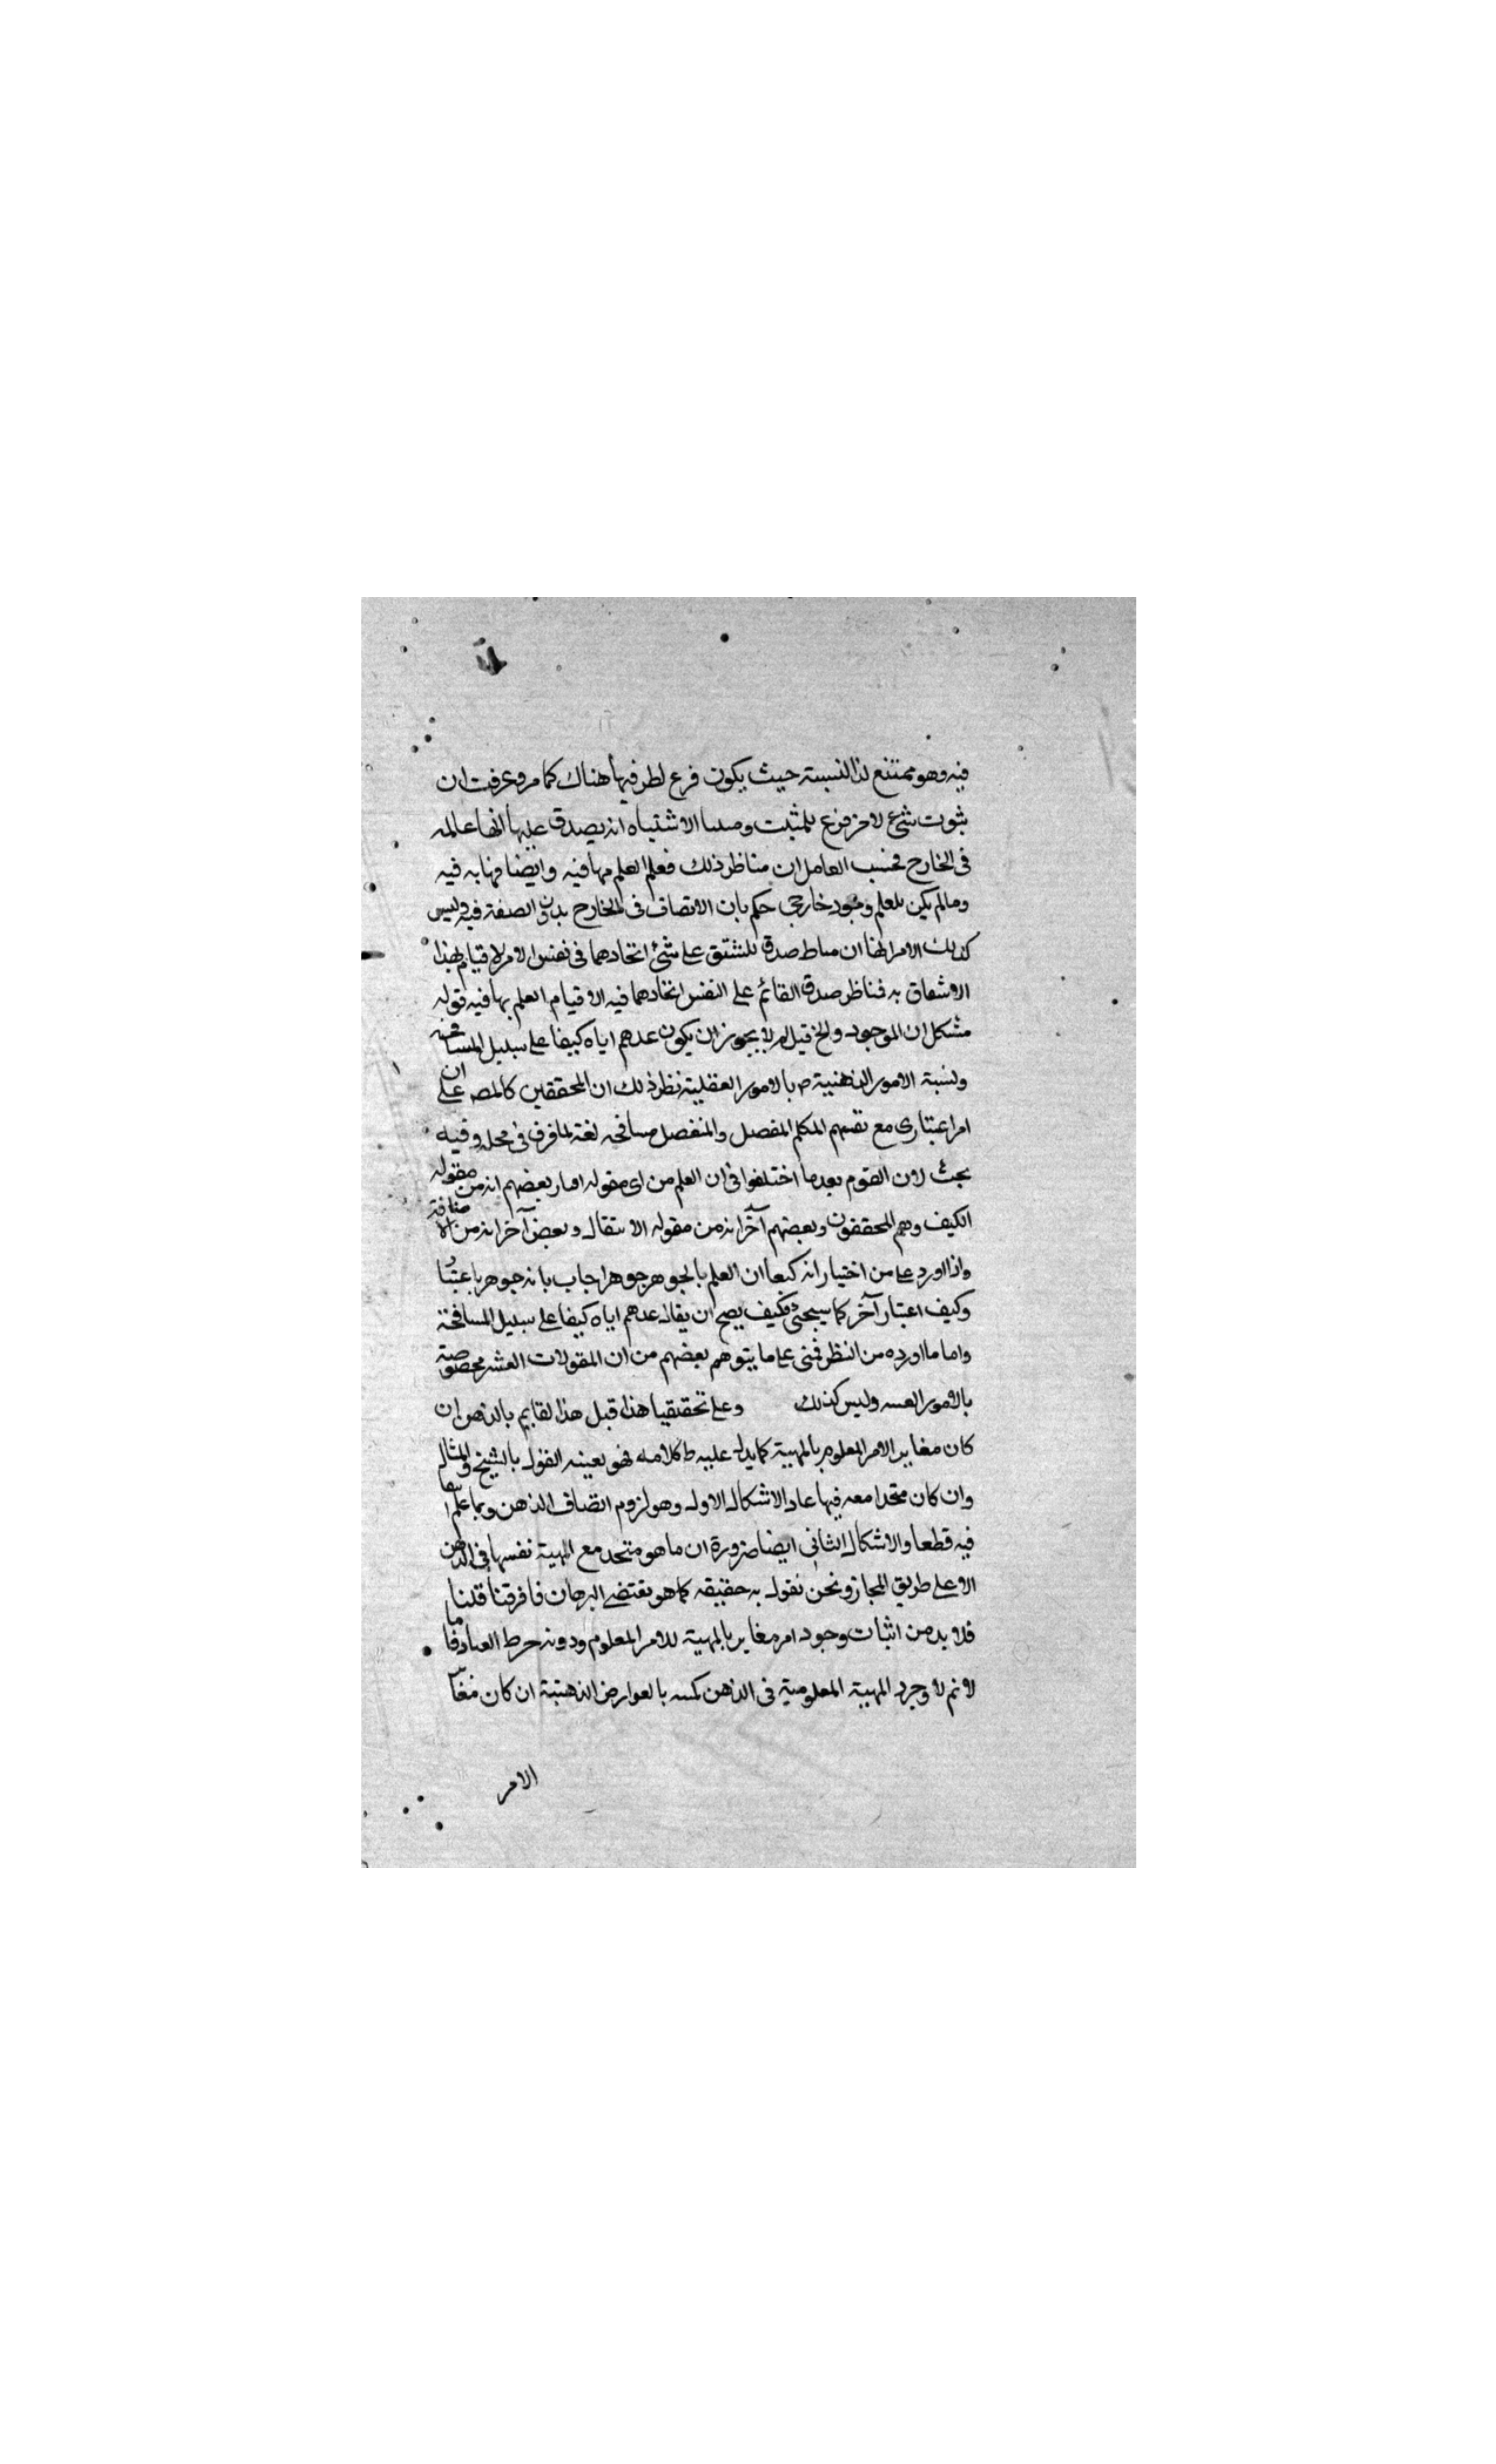 فيه وهو ممتنع لذا النسبة حيث يكون فرع لطرفيها هناك كما مر وعرفت ان
ثبوت شئ لاخر فرع للمثبت ومنشا الاشتباه انه يصدق عليها انها عالمه
فى الخارج فحسب العامل ان مناظر ذلك فعلم العلم مها فيه وايضا فها به فيه
ومالم يكن للعلم وجود خارجى حكم بان الاتصاف فى الخارج بدون الصفة فيه وليس
كذلك الامر لهنا ان مناط صدق للشتق على شئ اتحادهما فى نفس الامر لا قيام لهذا
الاشقاق به فناظر صدق القائم على النفس اتحادهما فيه الا قيام العلم بها فيه قوله
مشكل ان الموجود والخ قيل لم لا يجوز ان يكون عدهم اياه كيفا على سبيل المسافحة
ونسبة الامور الذهنية بالامور العقلية نظر ذلك ان المحققين كالمص على ان
امر اعتبارى مع تقسيم المكلم المفصل والمنفصل مسافحه لغة لما فرق فى محله وفيه
بحث لان القوم بعد ما اختلفوا فى ان العلم من اى مقوله اصار بعضهم انه من مقوله
الكيف وهم المحققون وبعضهم آخر انه من مقوله الانتقال وبعض آخر انه من الاضافة
واذا اورد على من اختيار انه كيف ان العلم بالجوهر جوهر اجاب بانه جوهر باعتبار
وكيف اعتبار آخر كما سيجئ فكيف يصح ان يقال عدهم اياه كيفا على سبيل المسافحة
واما ما اورده من النظر فمنى على ما يتوهم بعضهم من ان المقولات العشر مخصوصة
بالامور العسه وليس كذلك وعلى تحقيقيا هذا قبل هذا لقايم بالذهن ان
كان مغاير الامر المعلوم بالمهية كما يدل عليه ط كلامه فهو بعينه القول بالشبح والمثال
وان كان متحدا معه فيها عاد الاشكال الاول وهو لزوم اتصاف الذهن وبما علم
فيه قطعا والاشكال الثانى ايضا ضرورة ان ما هو متحد مع المهية نفسها فى الذهن
الا على طريق المجاز ونحن نقول به حقيقه كما هو نقتضى البرهان فافرقنا قلنا
فلا بد من اثبات وجود امر مغاير بالمهية للامر المعلوم ودونه خرط القتاد فما
لانم لا وجود المهية المعلومية فى الذهن بالعوارض الذهنية ان كان مغا
الامر